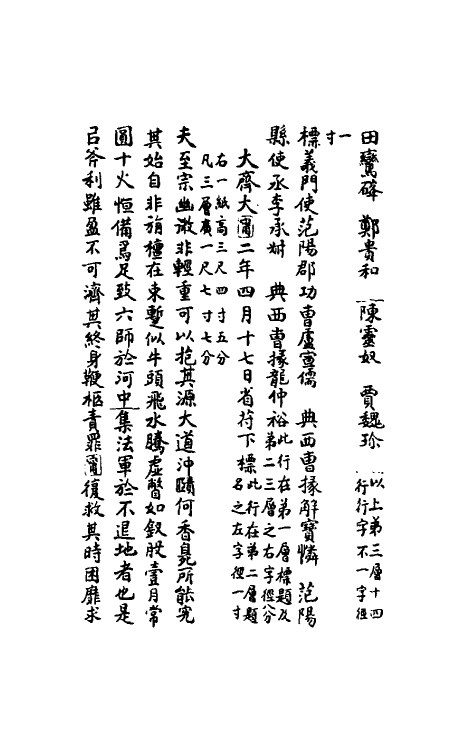 田鸞峰　鄭貴和　陳靈奴　賈魏珍　以上第三層十四行行字不一字徑
一寸
標義門使范陽郡功曹盧宣儒　典西曹掾解寶憐　范陽
縣使丞李承㛐　典西曹掾龍仲裕此行在第一層標題及第二三層之右字徑八分
大齊大寧二年四月十七日省符下標此行在第二層題名之左字徑一寸
右一紙高三尺四寸五分
凡三層廣一尺七寸七分
夫至宗幽微非輕重可以挹其源大道沖賾何香臭所能究
其始自非旃檀在束蹔似牛頭飛水騰虛瞥如釵股壹月常
圓十火恒備焉足致六師於河中集法軍於不退地者也是
㠯斧利雖盈不可濟其終身鞭樞責罪寧復救其時困靡求